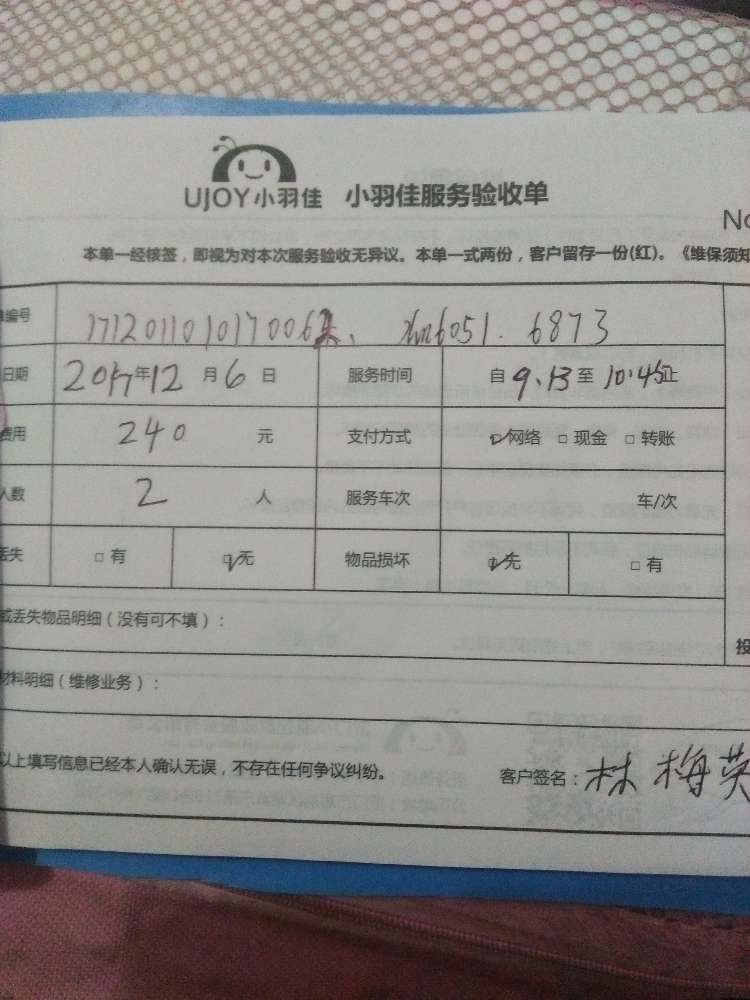 UJOY小羽佳 小羽佳服务验收单
No
本单一经核签，即视为对本次服务验收无异议。本单一式两份，客户留存一份(红)。《维保须知
编号 1712011010170062 6051. 6873
日期 2017年12月6日 服务时间 自9.13至10.45止
费用 240元 支付方式 网络 □现金 □转账
人数 2人 服务车次 车/次
丢失 □有 无 物品损坏 无 □有
或丢失物品明细（没有可不填）：
投
材料明细（维修业务）：
以上填写信息已经本人确认无误，不存在任何争议纠纷。 客户签名：林梅英